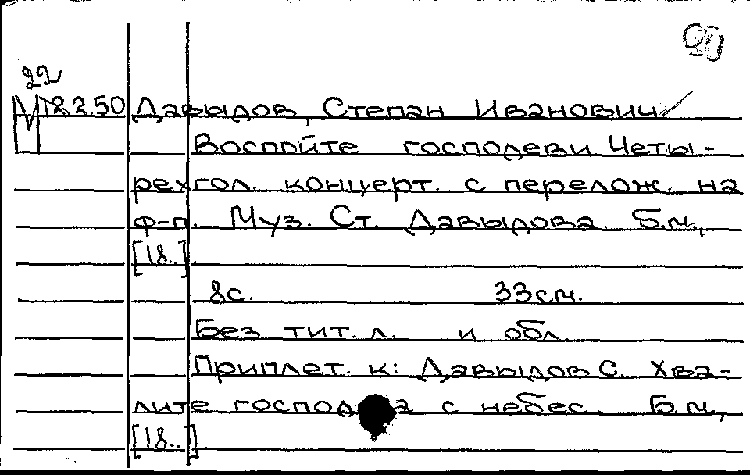 22
М 18.2.50 Давыдов, Степан Иванович
Воспойте господеви. Четы-
рехгол. концерт. с перелож. на
ф-п. Муз. Ст. Давыдова. Б.м.,
[18..]
8с. 33см.
Без тит. л. и обл.
Приплет. к: Давыдов С. Хва-
лите господа с небес. Б.м.,
[18..]